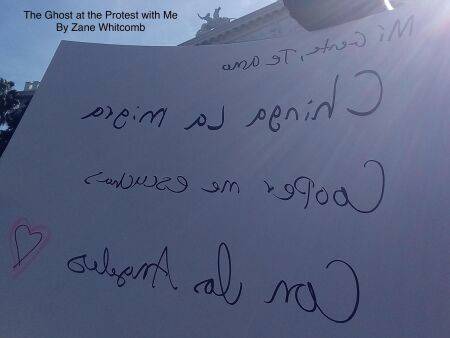 The Ghost at the Protest with Me
By Zane Whitcomb
Mi Gente, Te amo
Chinga La migra
Cooper me escuchas
Con los Angeles